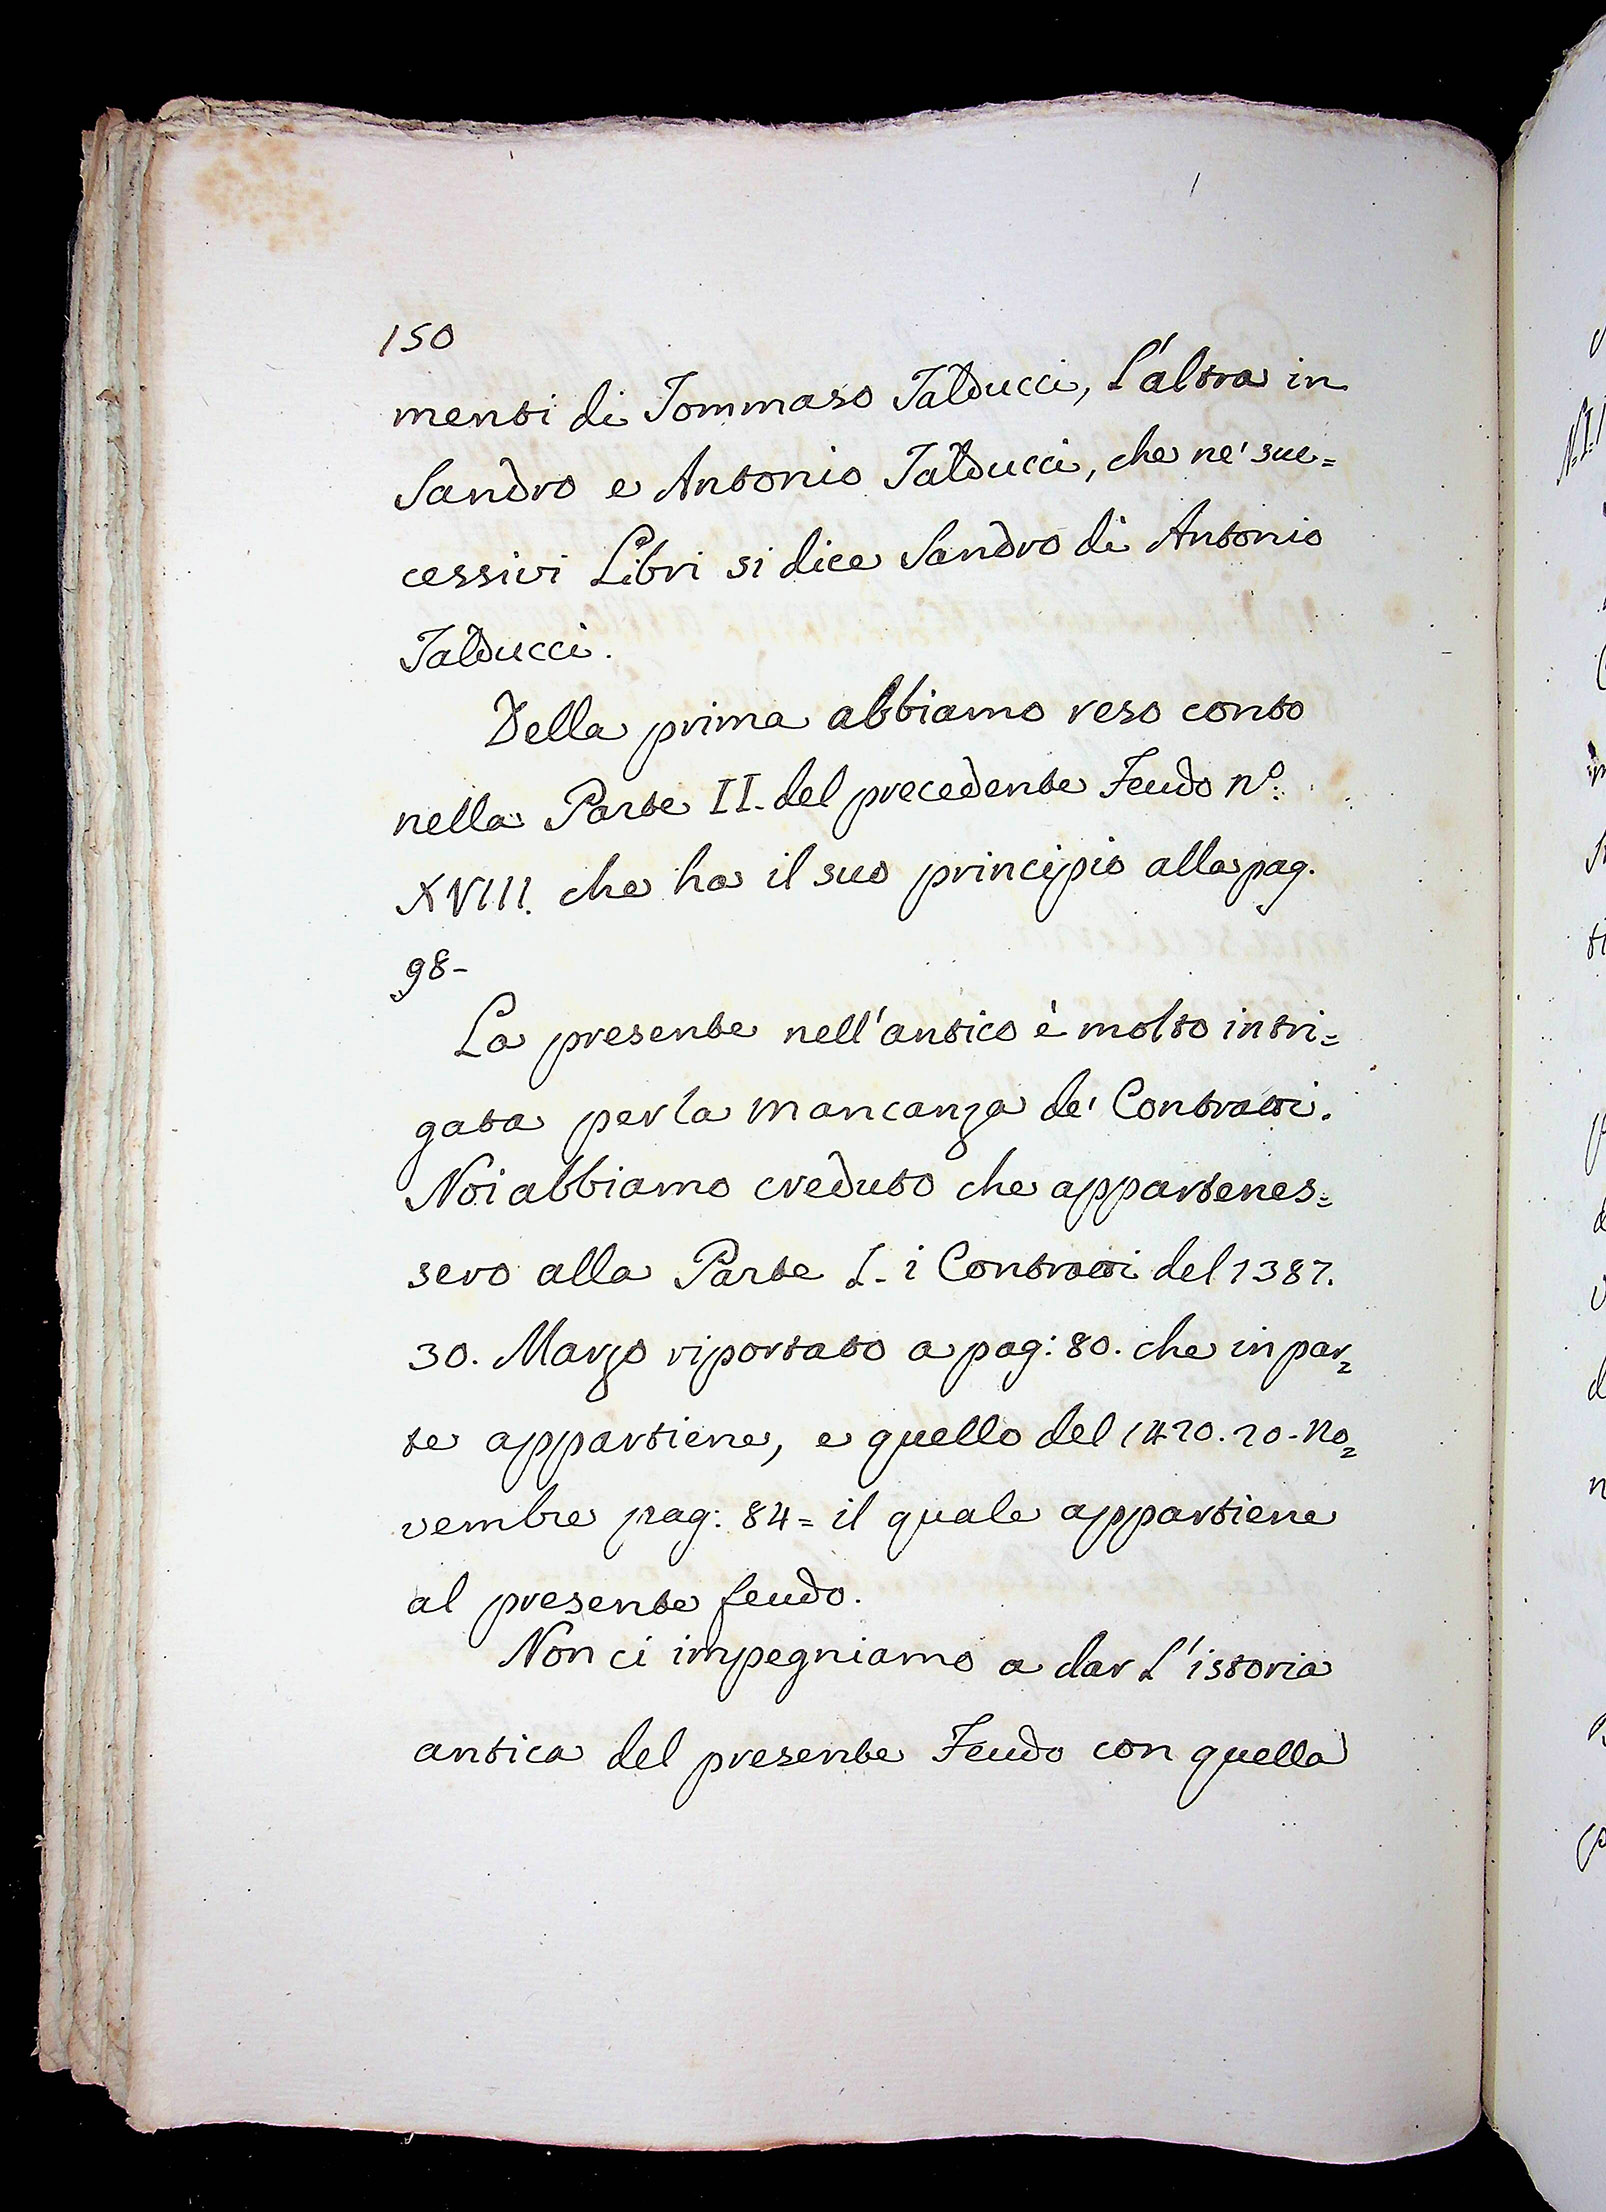 150
menti di Tommaso Talducci, L'altra in
Sandro e Antonio Talducci, che ne' suc=
cessivi Libri si dice Sandro di Antonio
Talducci.
Della prima abbiamo reso conto
nella Parte II. del precedente Feudo n.º
XVIII. che ha il suo principio alla pag.
98-
La presente nell'antico è molto intri=
gata per la mancanza de' Contratti.
Noi abbiamo creduto che appartenes=
sero alla Parte I. i Contratti del 1387.
30. Marzo riportato a pag: 80. che in par=
te appartiene, e quello del 1420. 20. No=
vembre pag: 84= il quale appartiene
al presente feudo.
Non ci impegniamo a dar L'istoria
antica del presente Feudo con quella